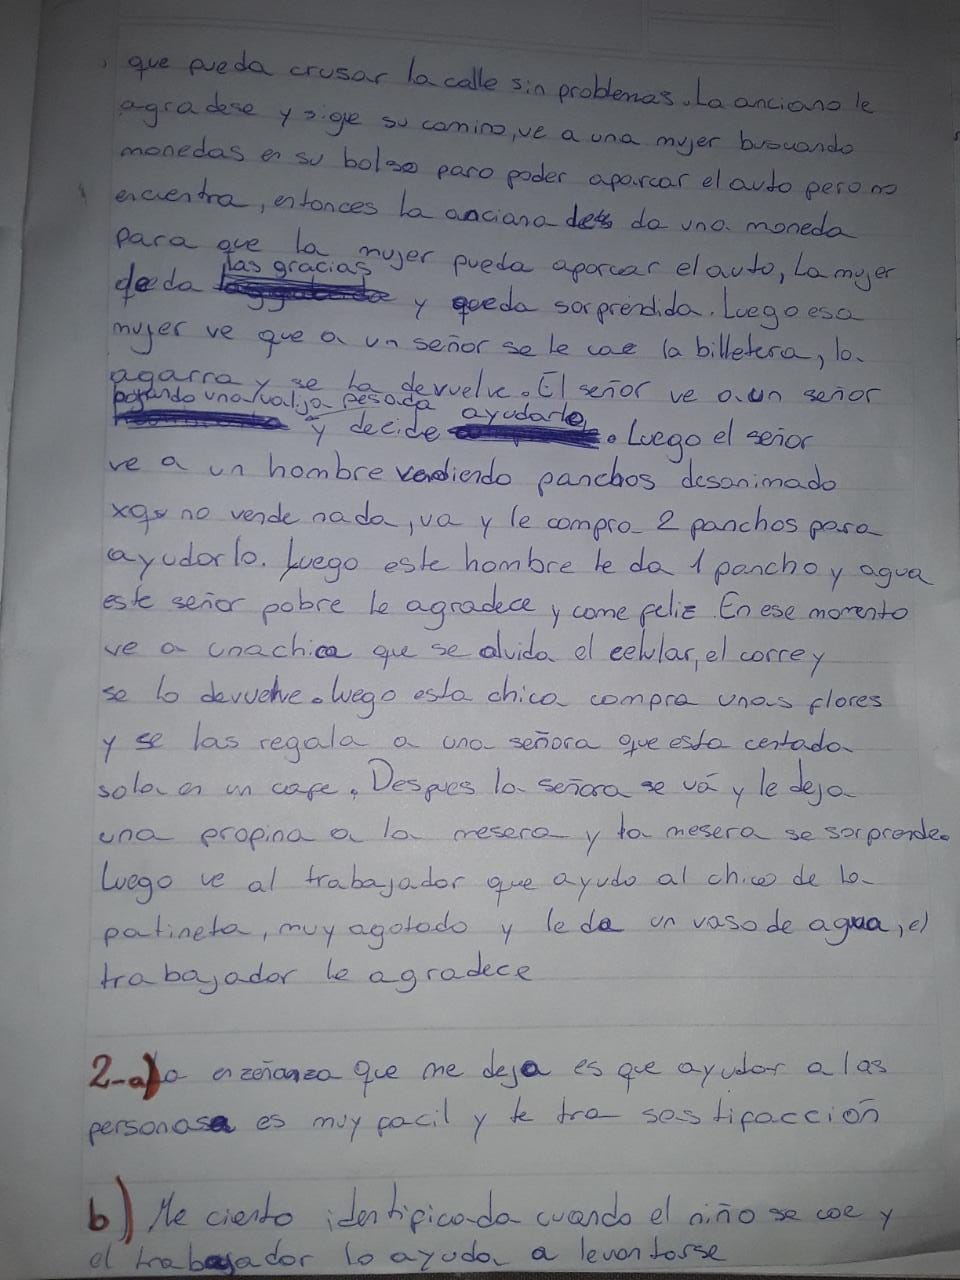 que pueda crusar la calle sin problemas. La anciana le
agradese y sigue su camino, ve a una mujer buscando
monedas en su bolso para poder aparcar el auto pero no
encuentra, entonces la anciana da una moneda
para que la mujer pueda aparcar el auto, La mujer
da las gracias y queda sorprendida. Luego esa
mujer ve que a un señor se le cae la billetera, la
agarra y se la devuelve. El señor ve a un señor
bajando una valija pesada y decide ayudarle. Luego el señor
ve a un hombre vendiendo panchos desanimado
xq no vende nada, va y le compra 2 panchos para
ayudarlo. Luego este hombre le da 1 pancho y agua
este señor pobre le agradece y come feliz. En ese momento
ve a una chica que se olvida el celular, el corre y
se lo devuelve. Luego esta chica compra unas flores
y se las regala a una señora que esta centada
sola en un cafe. Despues la señora se vá y le deja
una propina a la mesera y la mesera se sorprende.
Luego ve al trabajador que ayudo al chico de la
patineta, muy agotado y le da un vaso de agua, el
trabajador le agradece
2-a) La enzeñanza que me deja es que ayudar a las
personas es muy facil y te tra sastifacción
b) Me ciento identificada cuando el niño se cae y
el trabajador lo ayuda a levantarsse